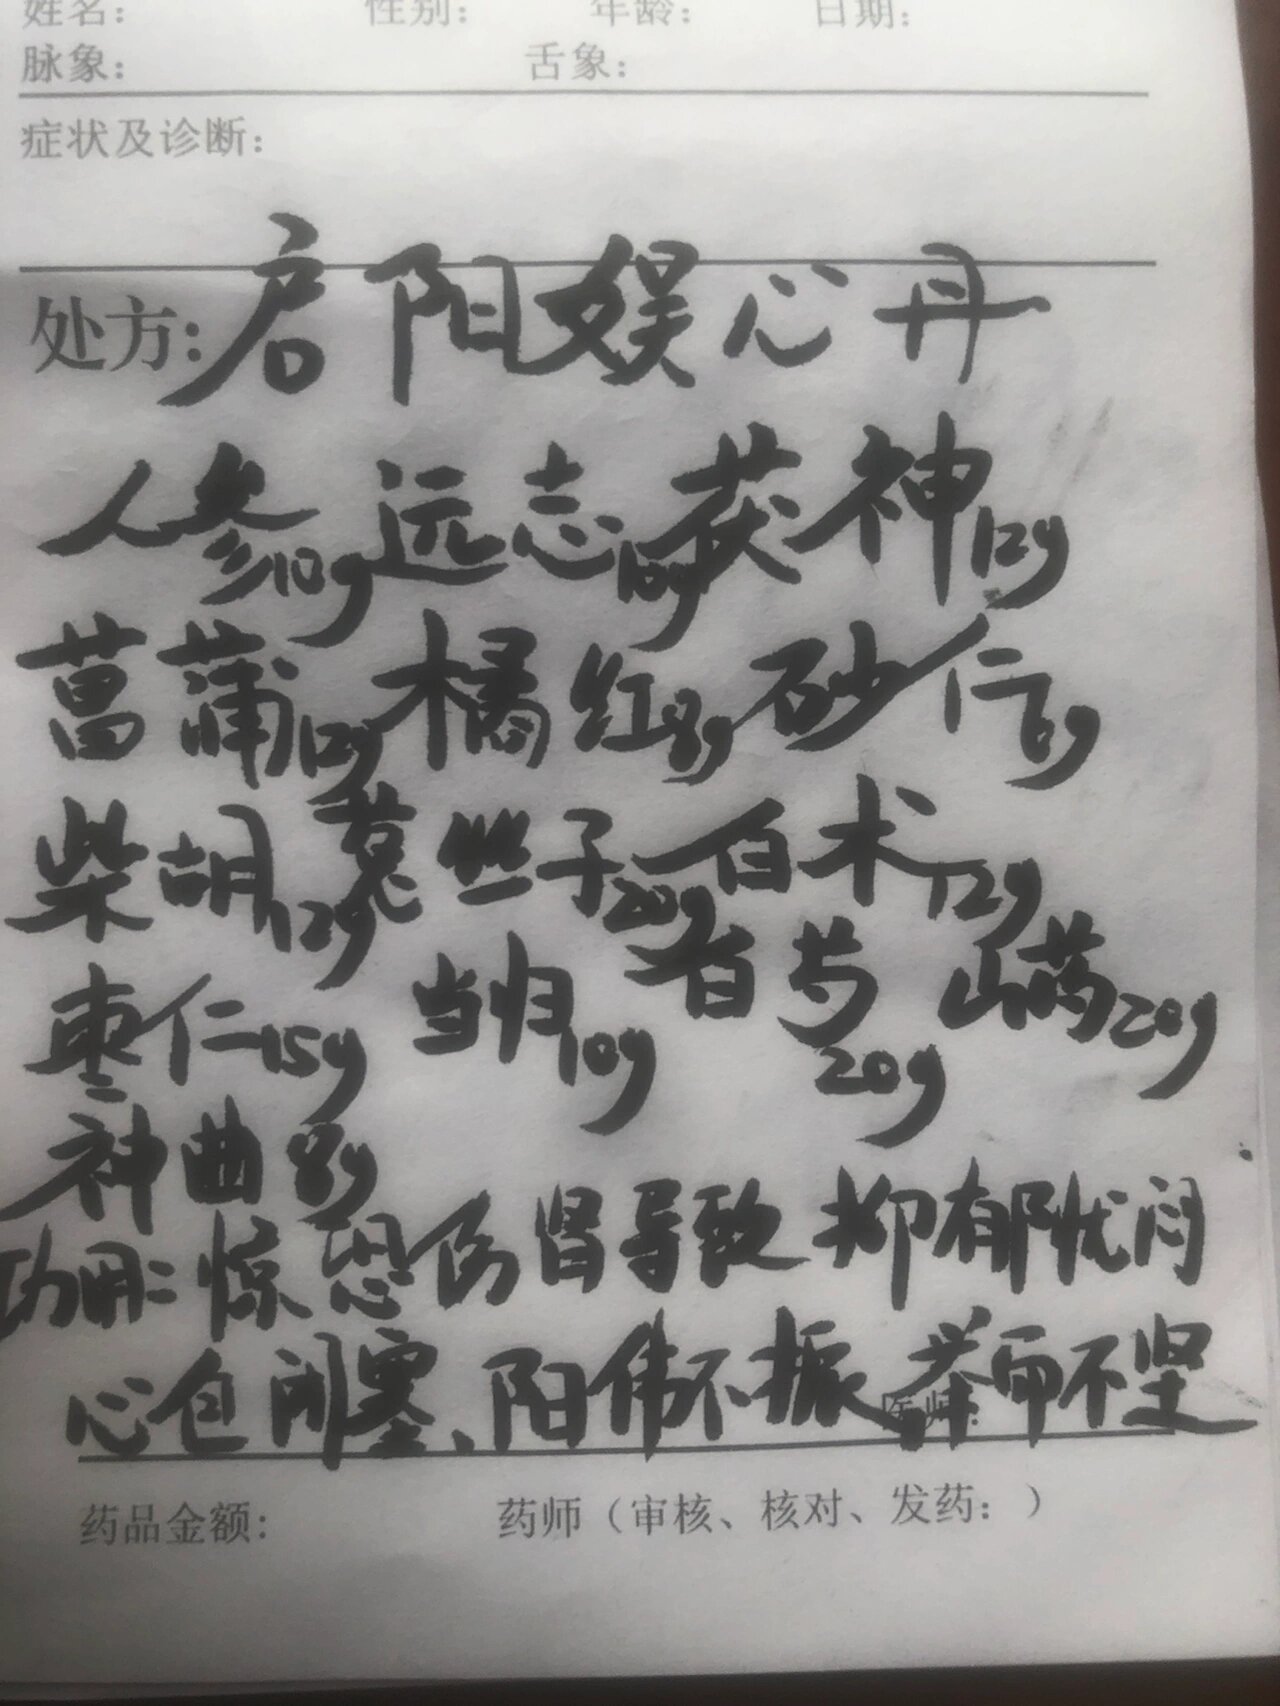 姓名： 性别： 年龄： 日期：
脉象： 舌象：
症状及诊断：
处方：启阳娱心丹
人参10g 远志10g 茯神12g
菖蒲12g 橘红8g 砂仁6g
柴胡12g 菟丝子20g 白术12g
枣仁15g 当归10g 白芍20g 山药20g
神曲8g
功用：惊恐伤肾导致抑郁忧闷
心包闭塞、阳伟不振、举而不坚
药品金额： 药师（审核、核对、发药：）